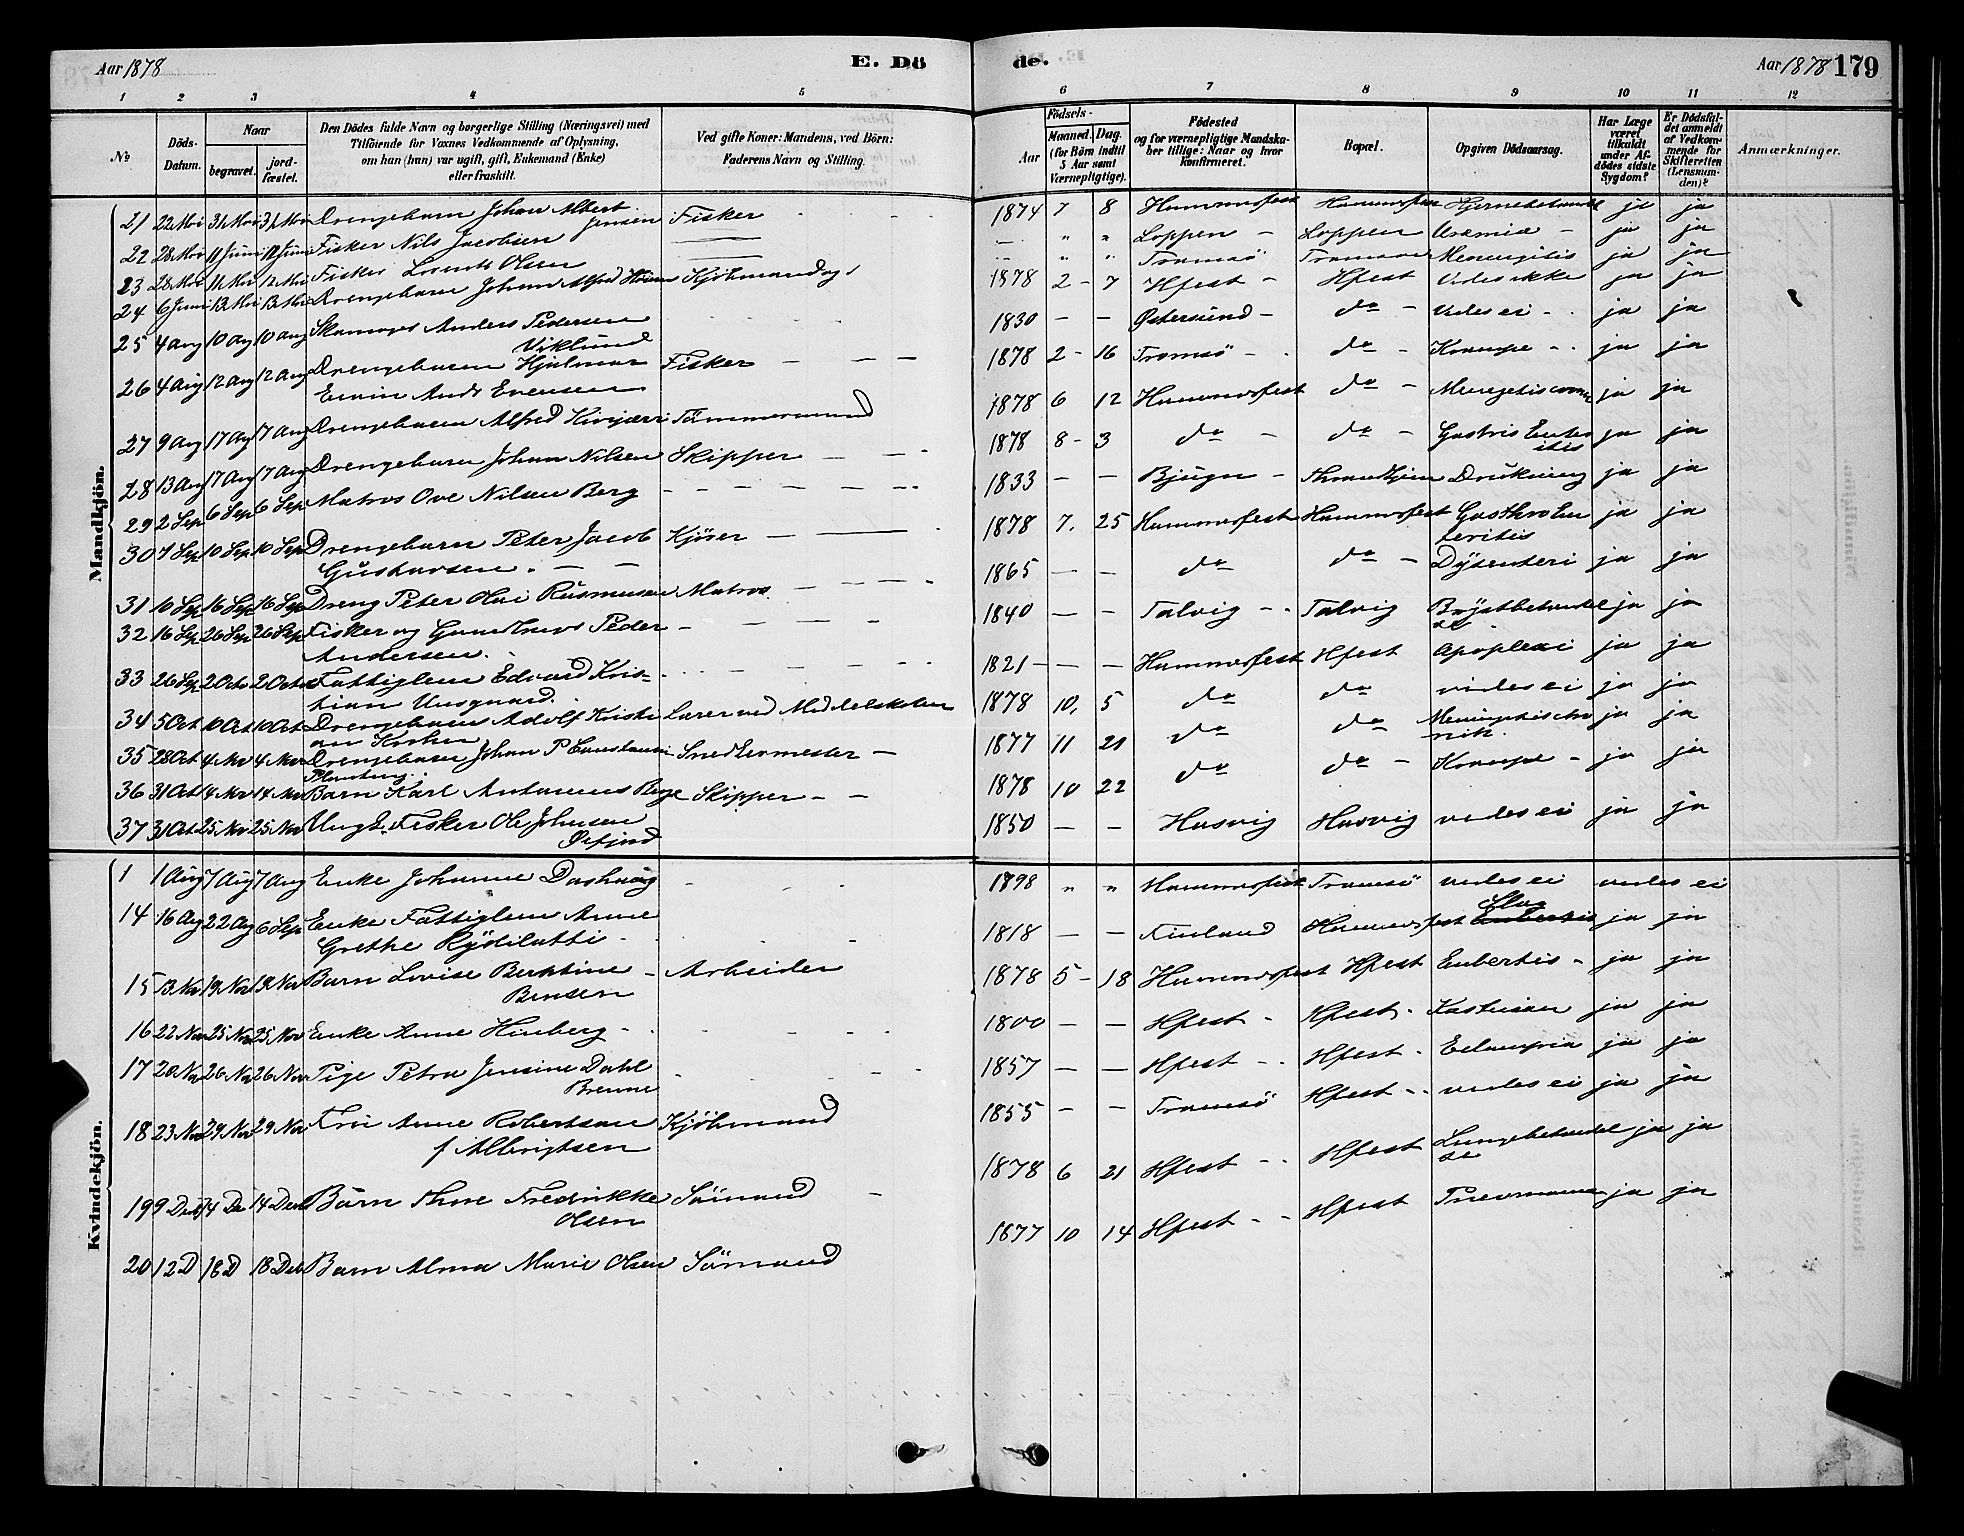 Aar 1878
E. Dö
de.
Aar 1878 179
1 2 3 4 5 6 7 8 9 10 11 12
No
Döds-Datum.
Naar
begravet.
jord-fæstet.
Den Dödes fulde Navn og borgerlige Stilling (Næringsvei) med
Tilföiende for Voxnes Vedkommende af Oplysning,
om han (hun) var ugift, gift, Enkemand (Enke)
eller fraskilt.
Ved gifte Koner: Mandens, ved Börn:
Faderens Navn og Stilling.
Födsels-
Aar
Maaned. Dag.
(for Börn indtil
5 Aar samt
Værnepligtige).
Födested
og for værnepligtige Mandska-
ber tillige: Naar og hvor
konfirmeret.
Bopæl.
Opgiven Dödsaarsag.
Har Læge
været
tilkaldt
under Af-
dödes sidste
Sygdom?
Er Dödsfal-
det anmeldt
af Vedkom-
mende for
Skifteretten
(Lensman-
den)?
Anmærkninger.
Mandkjön.
21 22 Mai 31 Mai 31 Mai Drengebarn Johan Albert Jensen Fisker 1874 7 8 Hammerfest Hammerfest ja ja
22 28 Mai 11 Juni 12 Juni Fisker Nils Jacobsen Loppen Loppen Uræmia ja ja
23 28 Mai Fisker Lorents Olsen Tromsö Tromsö Meningitis ja ja
24 6 Juni Drengebarn Johan Alfred 1878 2 7 Hfest Hfest Vides ikke ja ja
25 4 Aug 10 Aug 10 Aug Skomager Anders Pedersen
Viklund 1830 — — Østersund do Vides ei ja ja
26 4 Aug 12 Aug 12 Aug Drengebarn Hjalmar
Andr Evensen Fisker 1878 2 16 Tromsö do Krampe ja ja
27 9 Aug 17 Aug 17 Aug Drengebarn Alfred Kivijærvi Tömmermand 1878 6 12 Hammerfest do ja ja
28 13 Aug 17 Aug 17 Aug Drengebarn Johan Nilsen Skipper 1878 8 3 do do ja ja
29 2 Sep 6 Sep 6 Sep Matros Ove Nilsen Berg 1833 — — Bjugn Throndhjem Drukning ja ja
30 7 Sep 10 Sep 10 Sep Drengebarn Peter Jacob
Gustavsen Kjöser 1878 7 25 Hammerfest Hammerfest ja ja
31 10 Sep 16 Sep 16 Sep Dreng Peter Olai Rasmussen Matros 1865 — — do do Dysenteri ja ja
32 16 Sep 26 Sep 26 Sep Fisker og Peder
Andersen 1840 — — Talvig Talvig ja ja
33 26 Sep 2 Octo 2 Octo Fattiglem Edvard Kris-
tian 1821 — — Hammerfest Hfest Apoplexi ja ja
34 5 Oct 10 Oct 10 Oct Drengebarn Adolf Kristi
an Lærer ved Middelskolen 1878 10 5 do do vides ei ja ja
35 28 Oct 4 Nov 4 Nov Drengebarn Johan P Snedkermester 1877 11 21 do do ja ja
36 31 Oct 14 Nov 14 Nov Barn Karl Antonius Berge Skipper 1878 10 22 do do Krampe ja ja
37 31 Oct 25 Nov 25 Nov Ungk. Fisker Ole Johnsen
1850 — — Hasvig Hasvig vides ei ja ja
Kvindekjön.
1 1 Aug 7 Aug 7 Aug Enke Johanne 1898 Hammerfest Tromsö vides ei vides ei
14 16 Aug 22 Aug 6 Sep Enke Fattiglem Anne
Grethe 1818 — — Finland Hammerfest ja ja
15 13 Nov 19 Nov 19 Nov Barn Lovise Berntine
Bensen Arbeider 1878 5 18 Hammerfest Hfest ja ja
16 22 Nov 25 Nov 25 Nov Enke Anne Hinberg 1800 — — Hfest Hfest ja ja
17 20 Nov 26 Nov 26 Nov Pige Petra Jensine Dahl
Brenne 1857 — — Hfest Hfest Eclampsia ja ja
18 23 Nov 29 Nov 29 Nov Fru Anne Robertson
f Albrigtsen Kjöbmand 1855 — — Tromsö Hfest vides ei ja ja
19 9 Dec 14 De 14 Dec Barn Thore Fredrikke
Olsen Sömand 1878 6 21 Hfest Hfest Lungebetændel
se ja ja
20 12 D 18 D 18 Dec Barn Alma Marie Olsen Sömand 1877 10 14 Hfest Hfest ja ja